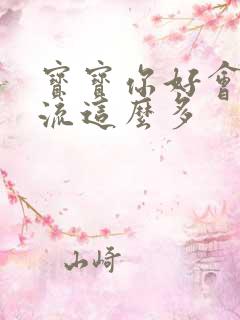 寶寶你好會
流這麼多
山崎